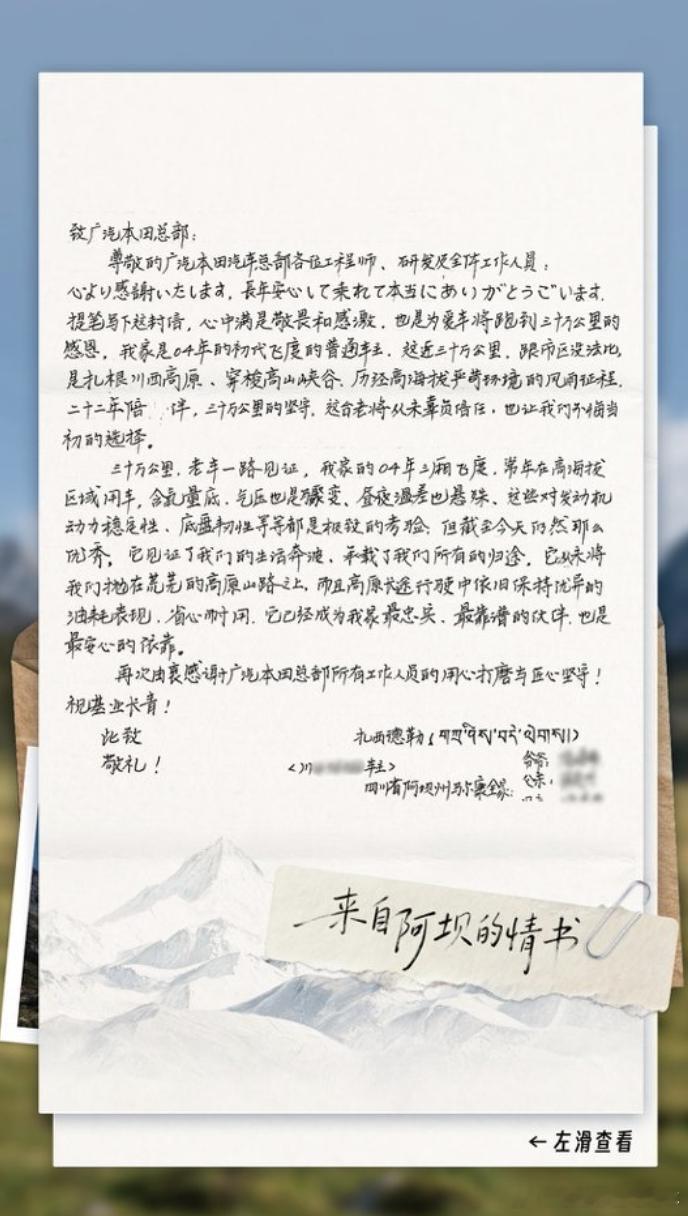 致广汽本田总部：
尊敬的广汽本田汽车总部各位工程师、研发及全体工作人员：
心より感謝いたします，長年安心して乗れて本当にありがとうございます．
提笔写下这封信，心中满是敬畏和感激，也是为爱车将跑到三十万公里的
感恩，我家是04年的初代飞度的普通车主．这近三十万公里，跟市区没法比，
是扎根川西高原、穿梭高山峡谷、历经高海拔严苛环境的风雨征程．
二十二年陪 伴，三十万公里的坚守，这台老将从未辜负信任，也让我们不悔当
初的选择。
三十万公里，老车一路见证，我家的04年三厢飞度，常年在高海拔
区域用车，含氧量底、气压也是骤变、昼夜温差也悬殊、这些对发动机
动力稳定性、底盘韧性等等都是极致的考验；但截至今天仍然那么
优秀。它见证了我们的生活奔波、承载了我们所有的归途，它从未将
我们抛在荒芜的高原山路之上，而且高原长途行驶中依旧保持优异的
油耗表现、省心耐用．它已经成为我家最忠实、最靠谱的伙伴．也是
最安心的依靠。
再次由衷感谢广汽本田总部所有工作人员的用心打磨与匠心坚守！
祝基业长青！
此致 扎西德勒（བཀྲ་ཤིས་བདེ་ལེགས།）
敬礼！ <川 车主>
四川省阿坝州马尔康全家：
来自阿坝的情书
←左滑查看